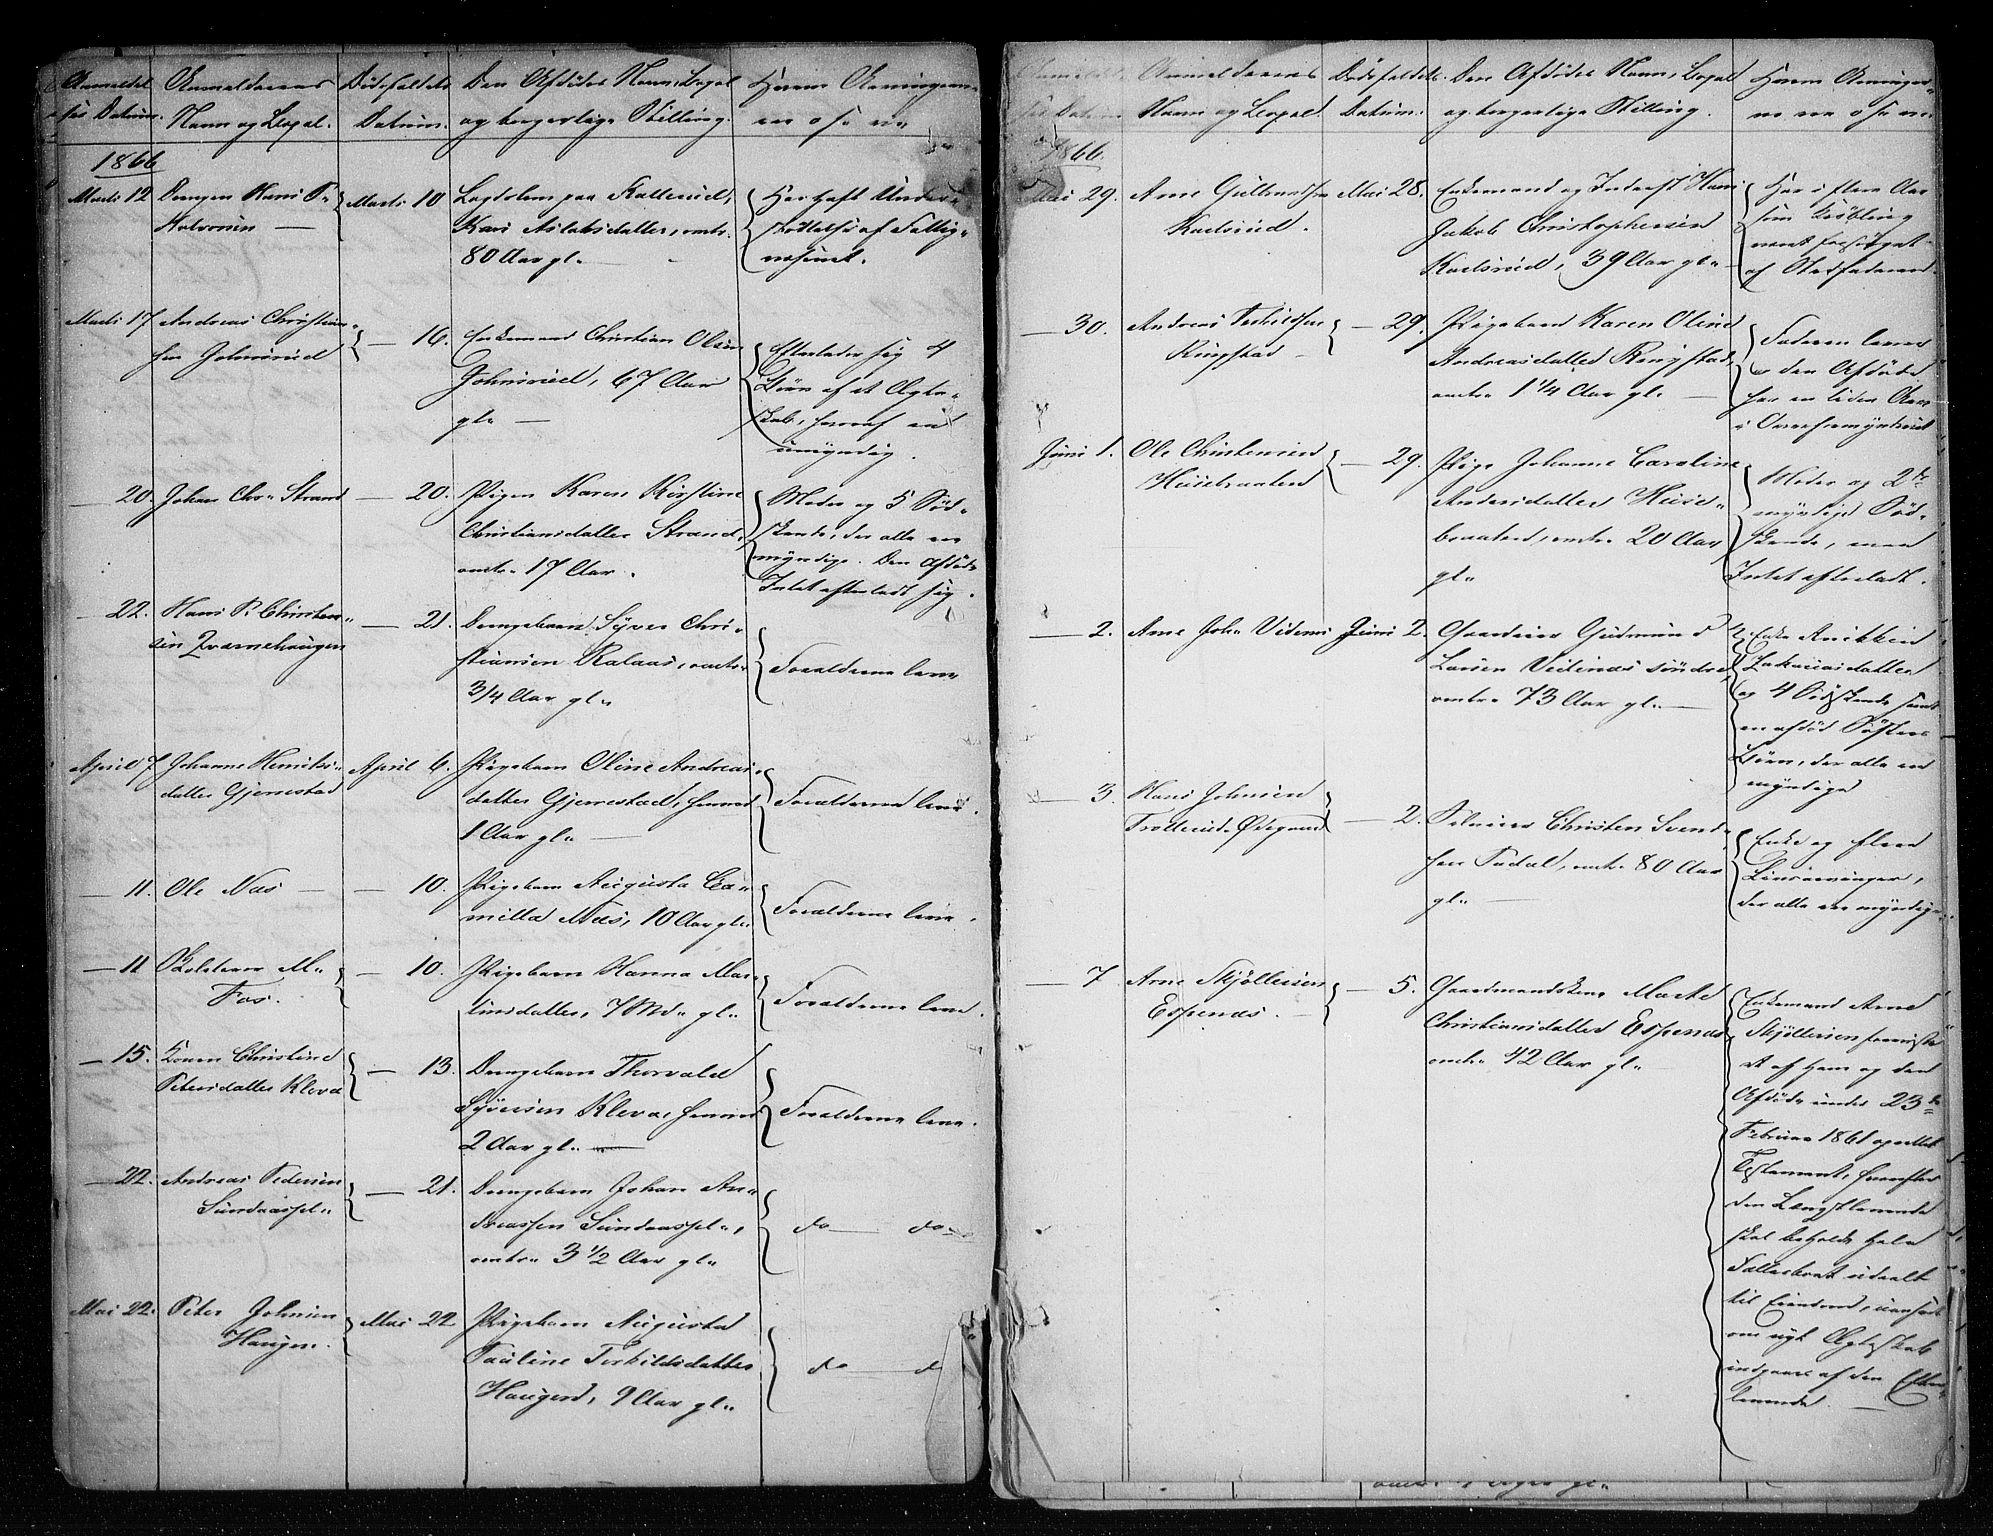 Anmeldel-
ses Datum.
Anmelderens
Navn og Bopæl.
Dödsfaldets
Datum.
Den Afdödes Navn, Bopæl
og borgerlige Stilling.
Hvem Arvingerne
er o. s. v.
1866
Marts 12
Drengen Hans P.
Halvorsen —
Marts 10
Lægdslem paa Kallerud,
Kari Aslaksdatter, omtr.
80 Aar gl. —
Har havt Under-
stöttelse af Fattig-
væsenet.
Marts 17
Andreas Christian-
sen Johnsrud
— 16.
Enkemand Christian Olsen
Johnsrud, 67 Aar
gl. —
Efterlader sig 4
Börn af et Ægte-
skab, hvoraf en
umyndig.
— 20.
Johan Chr. Strand
— 20.
Pigen Karen Kirstine
Christiansdatter Strand,
omtr. 17 Aar.
Moder og 5 Söd-
skende, der alle ere
myndige. Den Afdöde
Intet efterladt sig.
— 22.
Hans P. Christen-
sen Qværnehaugen
— 21.
Drengebarn Syver Chri-
stiansen Ralaas, omtr.
3/4 Aar gl.
Forældrene leve
April 7
Johanne Henriks-
datter Gjerrestad
April 6.
Pigebarn Oline Andreas-
datter Gjerrestad, henved
1 Aar gl. —
Forældrene leve.
— 11.
Ole Næs —
— 10.
Pigebarn Augusta Ca-
milla Næs, 10 Aar gl.
Forældrene leve.
— 11
M.
Fos.
— 10.
Pigebarn Hanna Mar-
tinsdatter, 7 Md. gl.
Forældrene leve.
— 15.
Konen Christine
Petersdatter Kleva
— 13.
Drengebarn Thorvald
Syversen Kleva, henved
2 Aar gl. —
Forældrene leve.
— 22.
Andreas Pedersen
Sundaaspl.
— 21.
Drengebarn Johan An-
dreassen Sundaaspl.,
omtr. 3 1/2 Aar gl.
do — do —
Mai 22.
Peter Johnsen
Haugen.
Mai 22
Pigebarn Augusta
Pauline Terkildsdatter
Haugen, 9 Aar gl.
do — d
Anmelderens
Navn og Bopæl.
Dödsfaldets
Datum.
Den Afdödes Navn, Bopæl
og borgerlige Stilling.
Hvem Arvinger-
ne ere o. s. v.
1866.
Mai 29.
Arne Gulbrandsen
Karlsrud.
Mai 28.
Enkemand og Inderst Hans
Jakob Christophersen
Karlsrud, 39 Aar gl.
Har i flere Aar
som Kröbling
været forsörget
af Stedfaderen.
— 30.
Andreas Terkildsen
Ringstad —
— 29.
Pigebarn Karen Oline
Andreasdatter Ringstad,
omtr. 1 1/4 Aar gl. —
Faderen lever
og den Afdöde
har en liden Arv
i Overformynderiet
Juni 1.
Ole Christensen
Huisebraaten
— 29.
Pige Johanne Caroline
Andersdatter Huise-
braaten, omtr. 20 Aar
gl.
Moder og 2de
myndige Söd-
skende, men
Intet efterladt.
— 2.
Arne Joh. Videnæs
Juni 2.
Gaardeier Gudmund
Larsen Veidenæs söndre
omtr. 73 Aar gl. —
Enke Anikken
Zakariasdatter
og 4 Södskende samt
en afdöd Sösters
Börn, der alle ere
myndige
— 3.
Hans Johnsen
Trollerud Ødegaard
— 2.
Selveier Christen Svend-
sen Tadal, omtr. 80 Aar
gl. —
Enke og flere
Livsarvinger,
der alle ere myndige.
— 7
Arne Skjöllersen
Espenæs.
— 5.
Gaardmandskone Marte
Christiansdatter Espenæs
omtr. 42 Aar gl.
Enkemand Arne
Skjöllersen foreviste
et af ham og den
Afdöde under 23de
Februar 1861 oprettet
Testament, hvorefter
den Længstlevende
skal beholde hele
Fællesboet udeelt
til Eiendom, uanseet
om nyt Ægteskab
indgaaes af den Efter-
levende. —